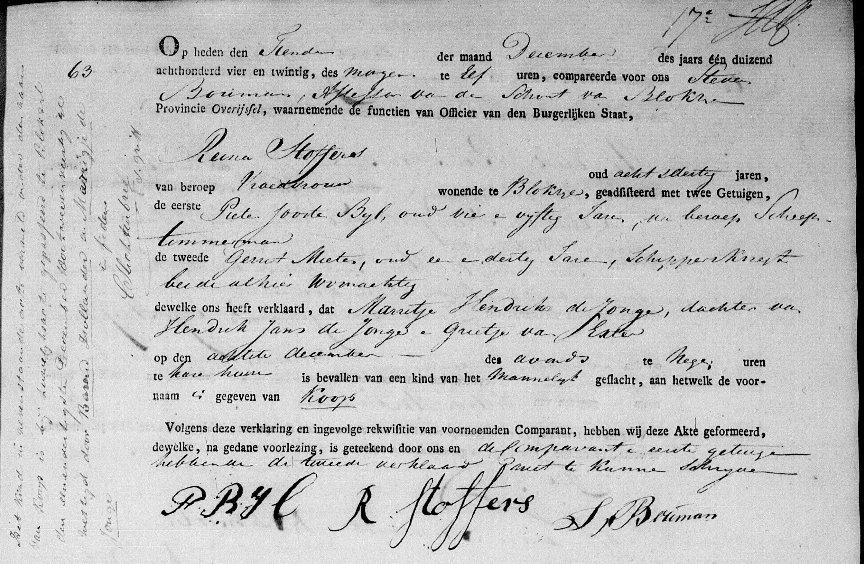 17e
63
Op heden den Tiende der maand December des jaars één duizend
achthonderd vier en twintig, des morgen te elf uren, compareerde voor ons Steven
Bouman, Assessor van de Schout va Blokz
Provincie Overijssel, waarnemende de functien van Officier van den Burgerlijken Staat,
Reina Stoffers
oud acht & dertig jaren,
van beroep Vroedvrouw wonende te Blokz, geadsisteerd met twee Getuigen,
de eerste Pieter Joosts Byl, oud vier e vyftig Jare, va beroep Scheeps
timmerman
de tweede Gerrit Meter, oud een e dertig Jare, Schippersknegt
beide alhier woonachtig
dewelke ons heeft verklaard, dat Marritje Hendriks de Jonge, dochter va
Hendrik Jans de Jonge e Grietje va
op den achtste december des avonds te Nege uren
te hare huise is bevallen van een kind van het Mannelyk geslacht, aan hetwelk de voor-
naam is gegeven van Koops
Volgens deze verklaring en ingevolge rekwisitie van voornoemden Comparant, hebben wij deze Akte geformeerd,
dewelke, na gedane voorlezing, is geteekend door ons en de Comparant e eerste getuige
hebbende de tweede verklaard niet te kunne schryve
P. BYL R Stoffers S Bouman
Dit kind in nevenstaande acte vermeld onder den naam
van Koops is bij huwelijksacte gepasseerd te Blokzijl
den eenendertigste December
wettigd door Barend Hollander en Marrigje de
Jonge